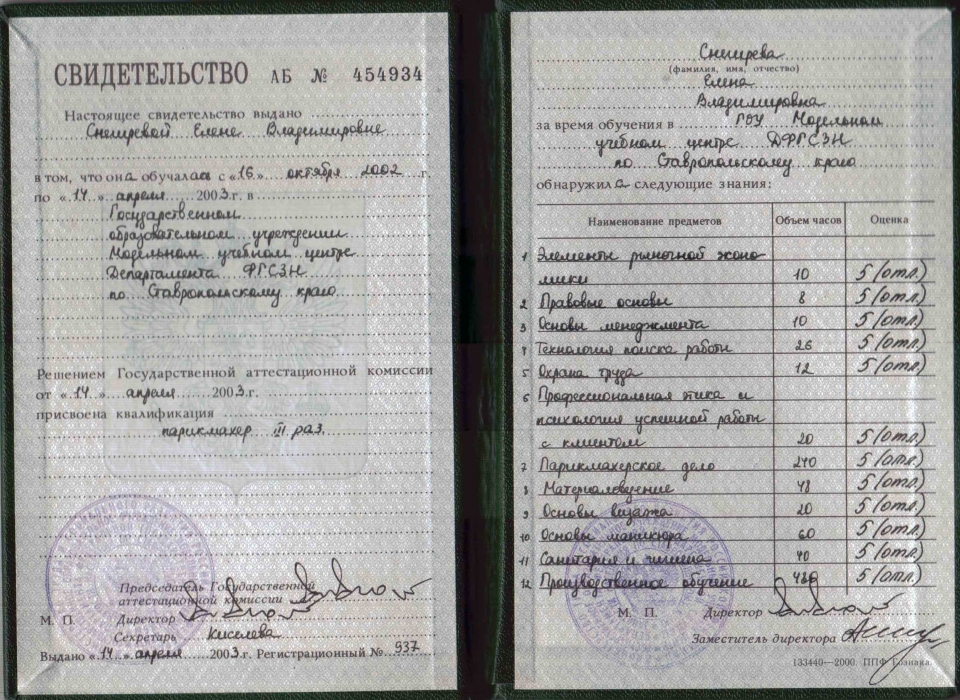 СВИДЕТЕЛЬСТВО АБ № 454934
Настоящее свидетельство выдано
Снегиревой Елене Владимировне
в том, что она обучалась с «16» октября 2002 г.
по «14» апреля 2003 г. в
Государственном
образовательном учреждении
Модельном учебном центре
Департамента ФГСЗН
по Ставропольскому краю
Решением Государственной аттестационной комиссии
от «14» апреля 2003 г.
присвоена квалификация
парикмахер III раз.
Председатель Государственной
аттестационной комиссии
М. П. Директор
Секретарь Киселева
Выдано «14» апреля 2003 г. Регистрационный № 937
Снегирева
(фамилия, имя, отчество)
Елена
Владимировна
за время обучения в ГОУ Модельном
учебном центре ДФГСЗН
по Ставропольскому краю
обнаружила следующие знания:
Наименование предметов Объем часов Оценка
1 Элементы рыночной эконо
мики 10 5 (отл.)
2 Правовые основы 8 5 (отл.)
3 Основы менеджмента 10 5 (отл.)
4 Технология поиска работы 26 5 (отл.)
5 Охрана труда 12 5 (отл.)
6 Профессиональная этика и
психология успешной работы
с клиентом 20 5 (отл.)
7 Парикмахерское дело 240 5 (отл.)
8 Материаловедение 48 5 (отл.)
9 Основы визажа 20 5 (отл.)
10 Основы маникюра 60 5 (отл.)
11 Санитария и гигиена 40 5 (отл.)
12 Производственное обучение 5 (отл.)
М. П. Директор
Заместитель директора
133440—2000. ППФ Гознака.